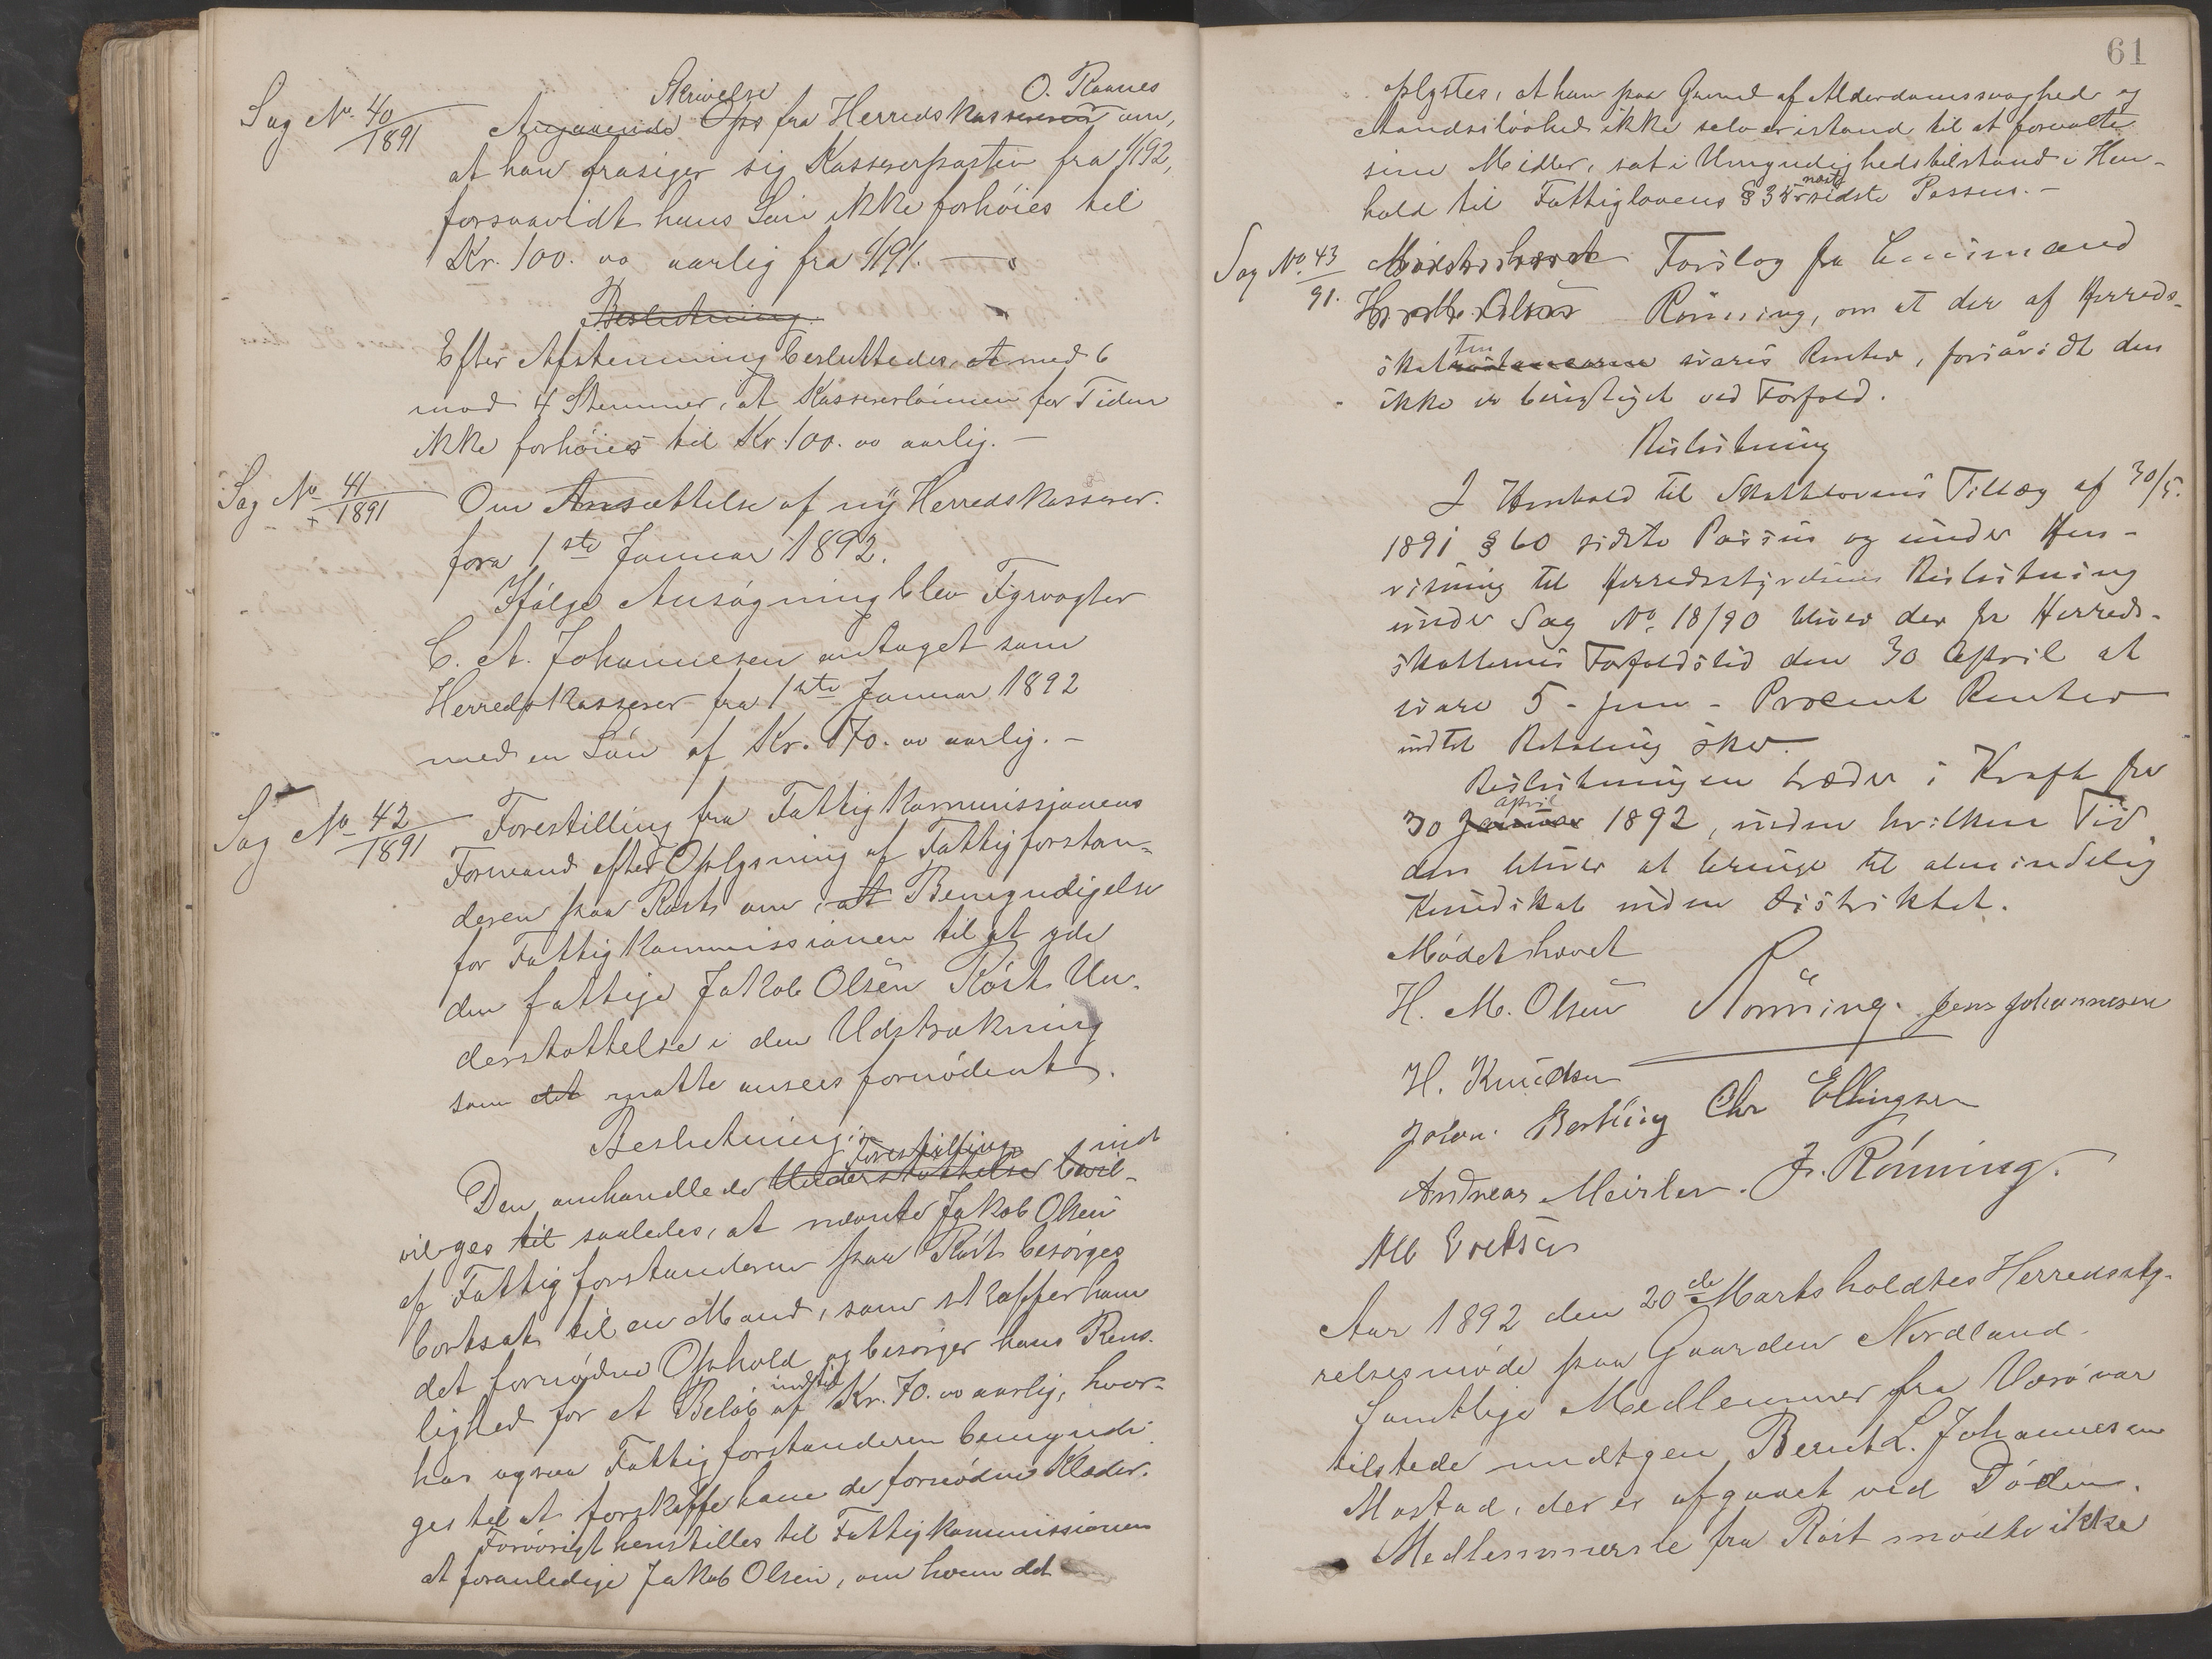 Sag No 40/1891
Skrivelse O. Raanes
Angaaende Ops fra Herredskassereren om,
at han frasiger sig Kassererposten fra 1/1 92,
forsaavidt hans Løn ikke forhøies til
Kr. 100. oo aarlig fra 1/1 91. —
Beslutning.
Efter Afstemning besluttedes at med 6
mod 4 Stemmer, at Kassererlønnen for Tiden
ikke forhøies til Kr. 100. oo aarlig. —
Sag No 41/1891
Om Ansættelse af ny Herredskasserer
fra 1ste Januar 1892.
Ifølge Ansøgning blev Fyrvogter
C. A. Johannesen antaget som
Herredskasserer fra 1ste Januar 1892
med en Løn af Kr. 70. oo aarlig. —
Sag No 42/1891
Forestilling fra Fattigkommissionens
Formand efter Oplysning af Fattigforstan-
deren paa Røst om, at Bemyndigelse
for Fattigkommissionen til at yde
den fattige Jakob Olsen Røst Un-
derstøttelse i den Udstrækning
som det maatte ansees fornødent.
Beslutning:
Forestilling ind
Den omhandlede Understøttelse bevil-
vilges til saaledes, at nævnte Jakob Olsen
af Fattigforstanderen paa Røst besørges
bortsat til en Mand, som skaffer ham
det fornødne Ophold og besørger hans Rens-
indtil
lighed for et Beløb af Kr. 70. oo aarlig, hvor-
hos ogsaa Fattigforstanderen bemyndi-
ges til at forskaffe ham de fornødne Klæder.
Forøvrigt henstilles til Fattigkommissionen
at foranledige Jakob Olsen, om hvem det
61
oplystes, at han paa Grund af Alderdomssvaghed og
Aandssløvhed ikke selv er istand til at forvalte
sine Midler, sat i Umyndighedstilstand i Hen-
næst
hold til Fattiglovens § 34 sidste Passus. —
Sag No. 43/91.
Forslag fra Lensmand
Rönning, om at der af Herreds-
ten
skat svares Renter, forsåvidt den
ikke er berigtiget ved Forfald.
Beslutning
I Henhold til Skattelovens Tillæg af 30/5.
1891 § 60 sidste Passus og under Hen-
visning til Herredsstyrelsens Beslutning
under Sag No. 18/90 bliver der fra Herreds-
skatternes Forfaldstid den 30 April at
svare 5 - fem - Procent Renter
indtil Betaling sker.
Beslutningen træder i Kraft fra
April
30 Januar 1892, inden hvilken Tid
den bliver at bringe til almindelig
Kundskab inden Distriktet.
Mødet hævet
H. M. Olsen Rönning. Jens Johannesen
H. Knudsen
Johan Berting Chr Ellingsen
Andreas Meisler. J. Rønning.
Alb
Aar 1892 den 20de Marts holdtes Herredssty-
relsesmøde paa Gaarden Nordland.
Samtlige Medlemmer fra Værø var
tilstede undtgen Bernt L. Johannesen
Mostad, der er afgaaet ved Døden.
Medlemmerne fra Røst mødte ikke